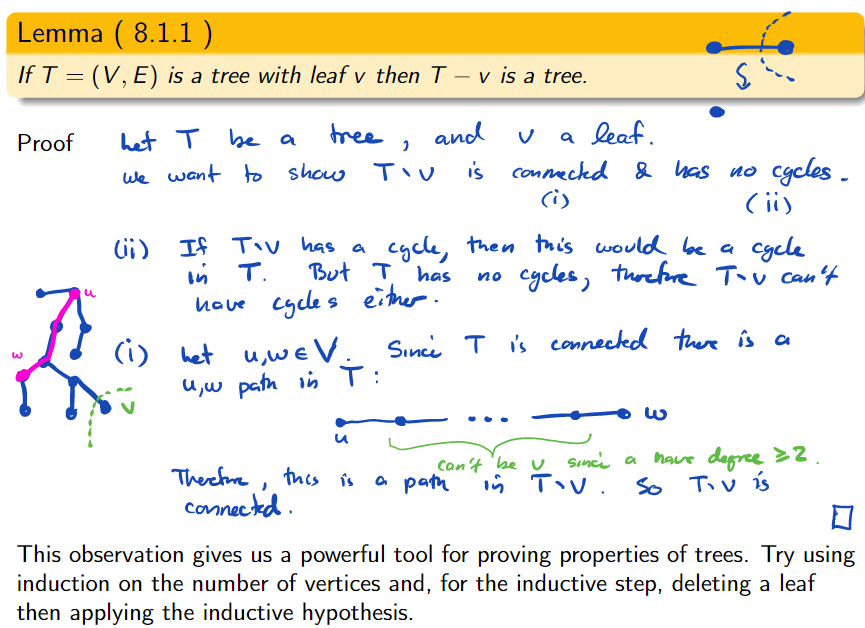 Lemma ( 8.1.1 )
If T = (V, E) is a tree with leaf v then T − v is a tree.
Proof
Let T be a tree, and v a leaf.
we want to show T∖v is connected & has no cycles.
(i) (ii)
(ii) If T∖v has a cycle, then this would be a cycle
in T. But T has no cycles, therefore T∖v can't
have cycles either.
u
w
v
(i) Let u,w ∈ V. Since T is connected there is a
u,w path in T:
u ... w
can't be v since a have degree ≥2.
Therefore, this is a path in T∖v. So T∖v is
connected.
This observation gives us a powerful tool for proving properties of trees. Try using
induction on the number of vertices and, for the inductive step, deleting a leaf
then applying the inductive hypothesis.